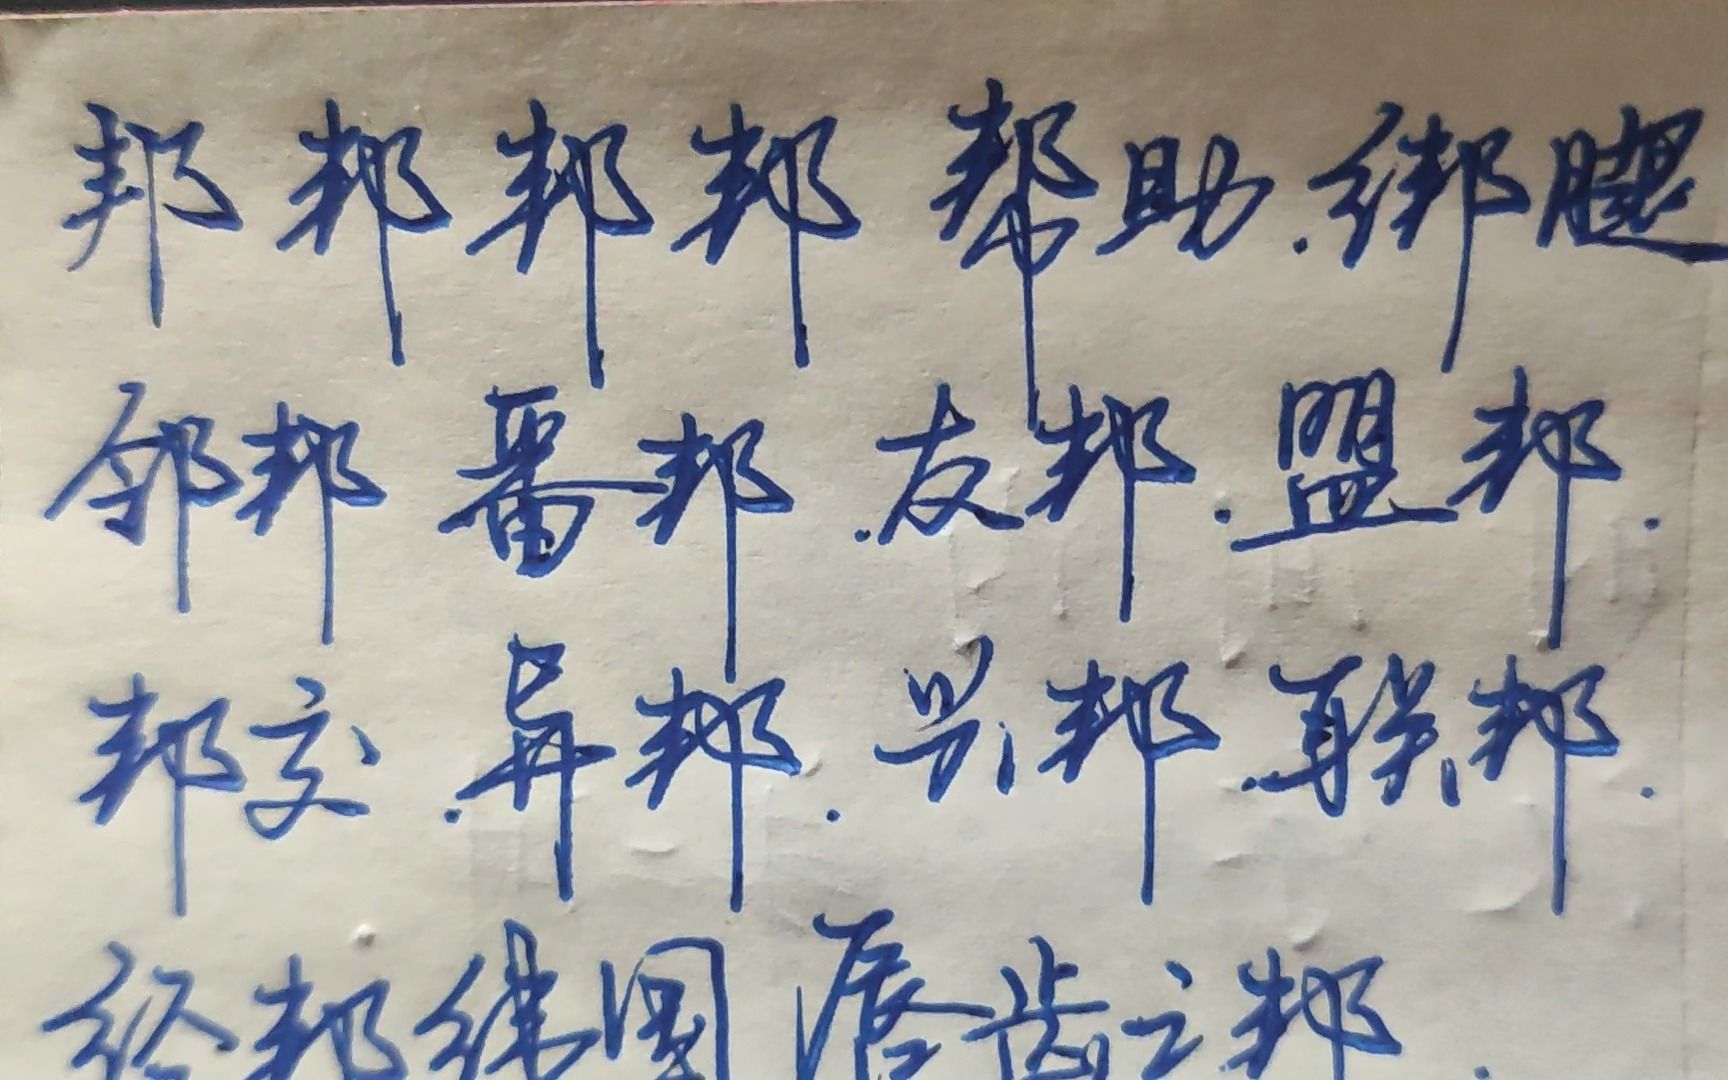 邦 邦 邦 邦 帮助.绑腿
邻邦 番邦.友邦.盟邦.
邦交.异邦.兴邦.联邦.
经邦纬国 唇齿之邦.